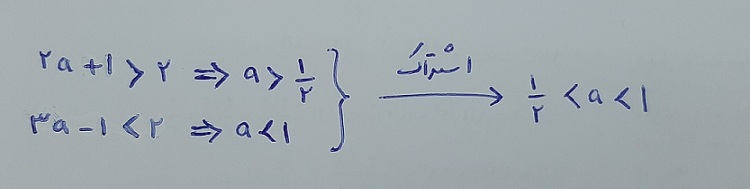 ۲a + ۱ > ۲ ⇒ a > ۱/۲
۳a - ۱ < ۲ ⇒ a < ۱
اشتراک
۱/۲ < a < ۱